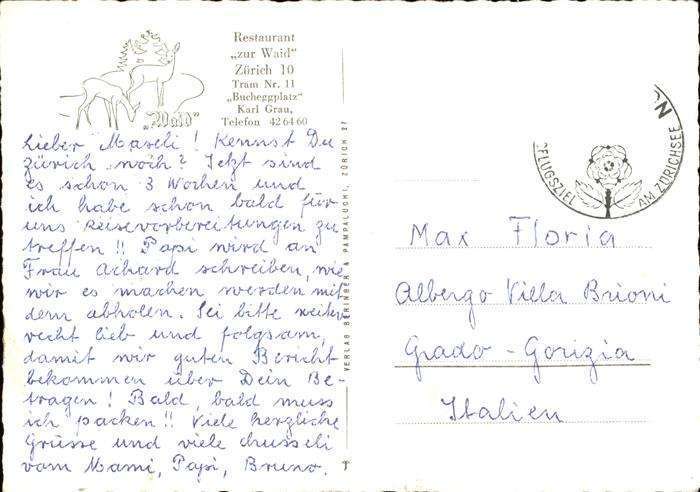 Restaurant
„zur Waid"
Zürich 10
Tram Nr. 11
„Bucheggplatz"
Karl Grau,
Telefon 42 64 60
„Waid"
Lieber Maxeli! Kennst Du
Zürich noch? Jetzt sind
es schon 3 Wochen und
ich habe schon bald für
uns Reisevorbereitungen zu
treffen!! Papi wird an
Frau Achard schreiben, wie
wir es machen werden mit
dem abholen. Sei bitte weiter
recht lieb und folgsam,
damit wir guten Bericht
bekommen über Dein Be
tragen! Bald, bald muss
ich packen!! Viele herzliche
Grüsse und viele chusseli
vom Mami, Papi, Bruno.
VERLAG BERINGER & PAMPALUCHI, ZÜRICH 27
AUSFLUGSZIEL
AM ZÜRICHSEE
Max Floria
Albergo Villa Brioni
Grado - Gorizia
Italien